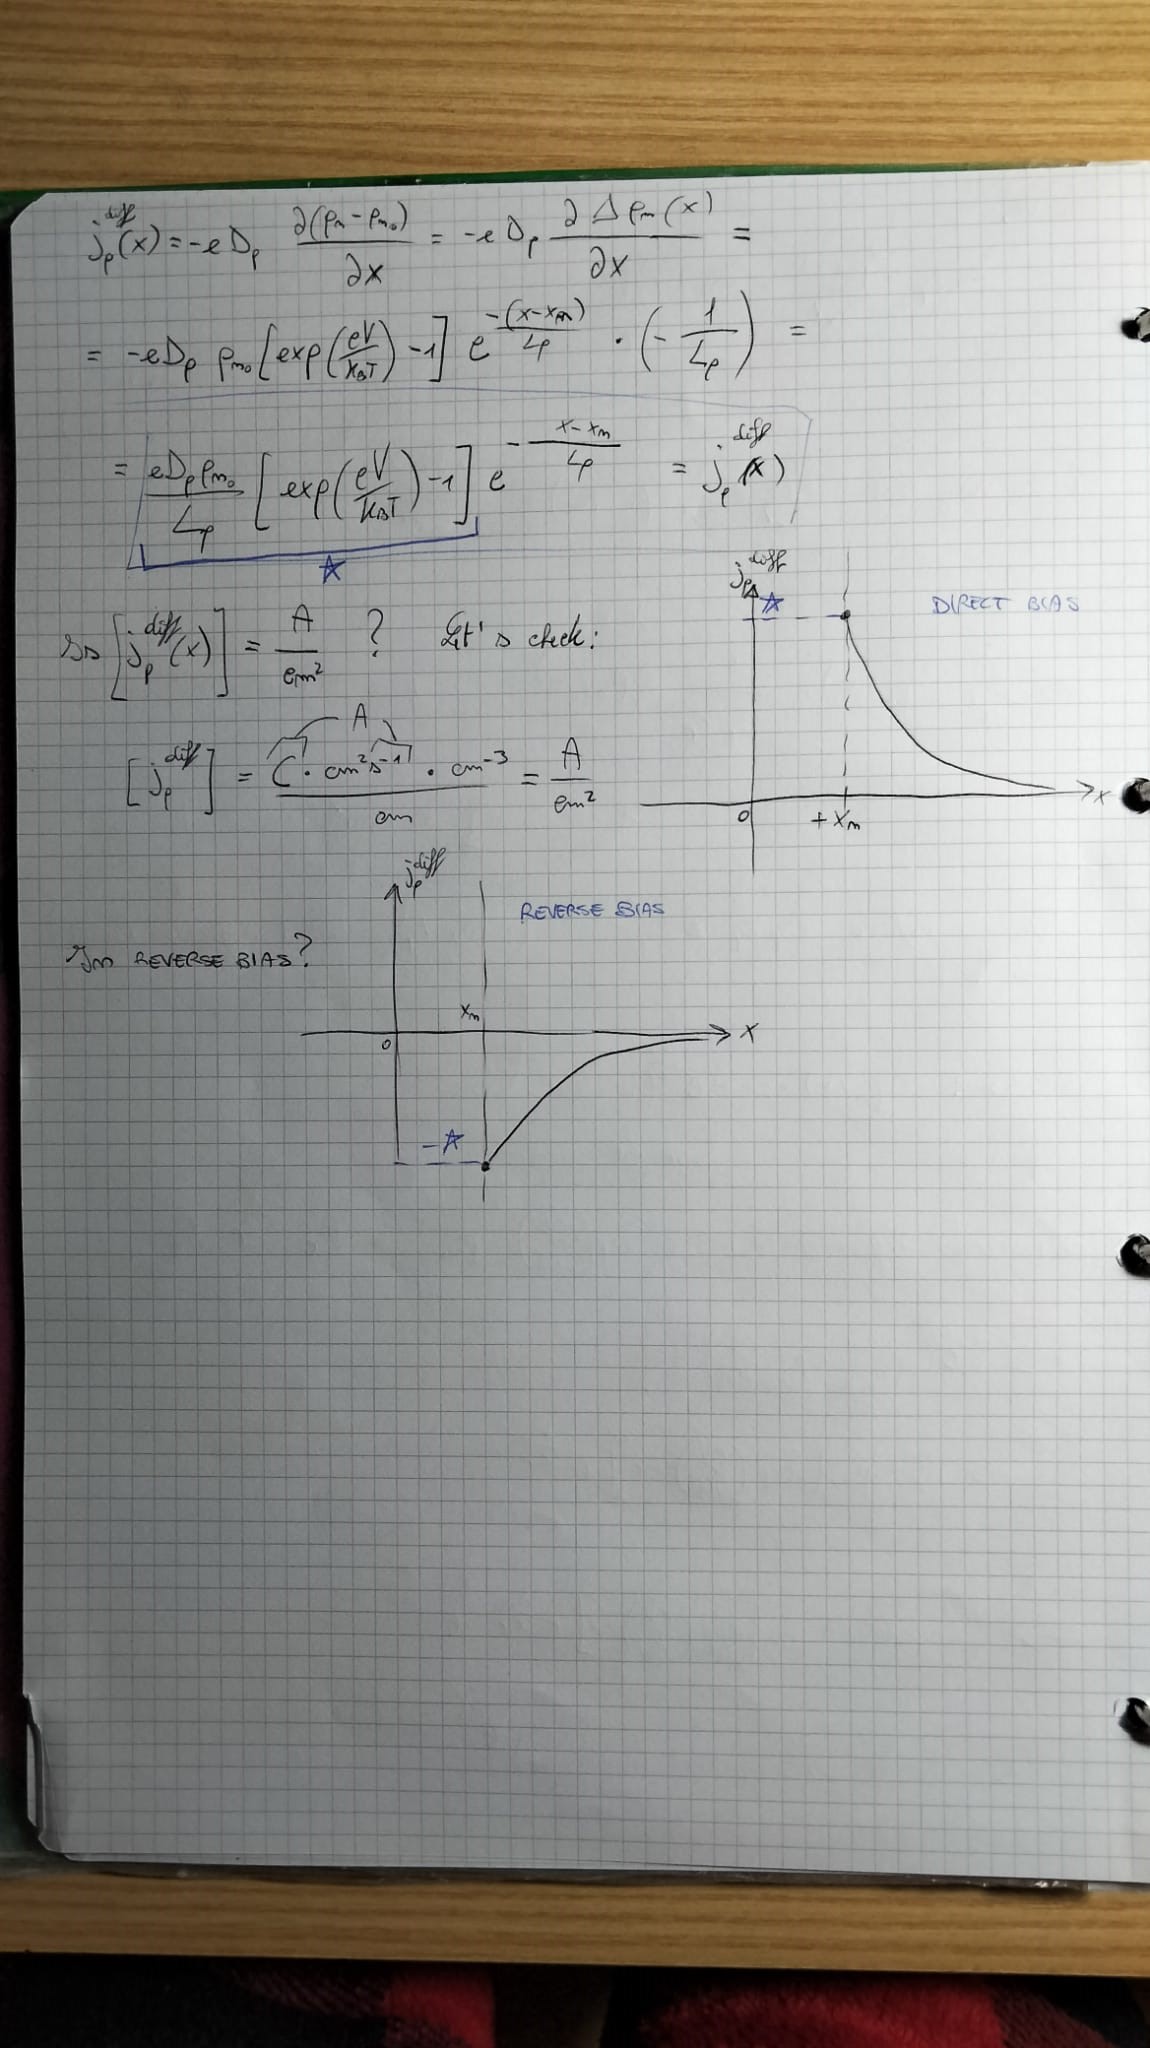 j_p^diff(x) = -e D_p ∂(p_n - p_n₀)/∂x = -e D_p ∂Δp_n(x)/∂x =
= -e D_p p_n₀ [exp(eV/k_BT) - 1] e^(-(x-x_n)/L_p) · (-1/L_p) =
= e D_p p_n₀/L_p [exp(eV/k_BT) - 1] e^(-(x-x_n)/L_p) = j_p^diff(x)
☆
Is [j_p^diff(x)] = A/cm² ? Let's check:
A
[j_p^diff] = C · cm² s⁻¹ · cm⁻³/cm = A/cm²
j_p^diff
☆
DIRECT BIAS
0
+x_n
x
In REVERSE BIAS?
j_p^diff
REVERSE BIAS
x_n
0
x
-☆